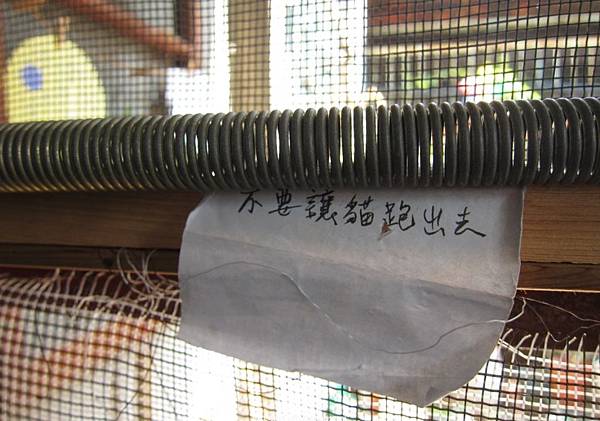 不要讓貓跑出去